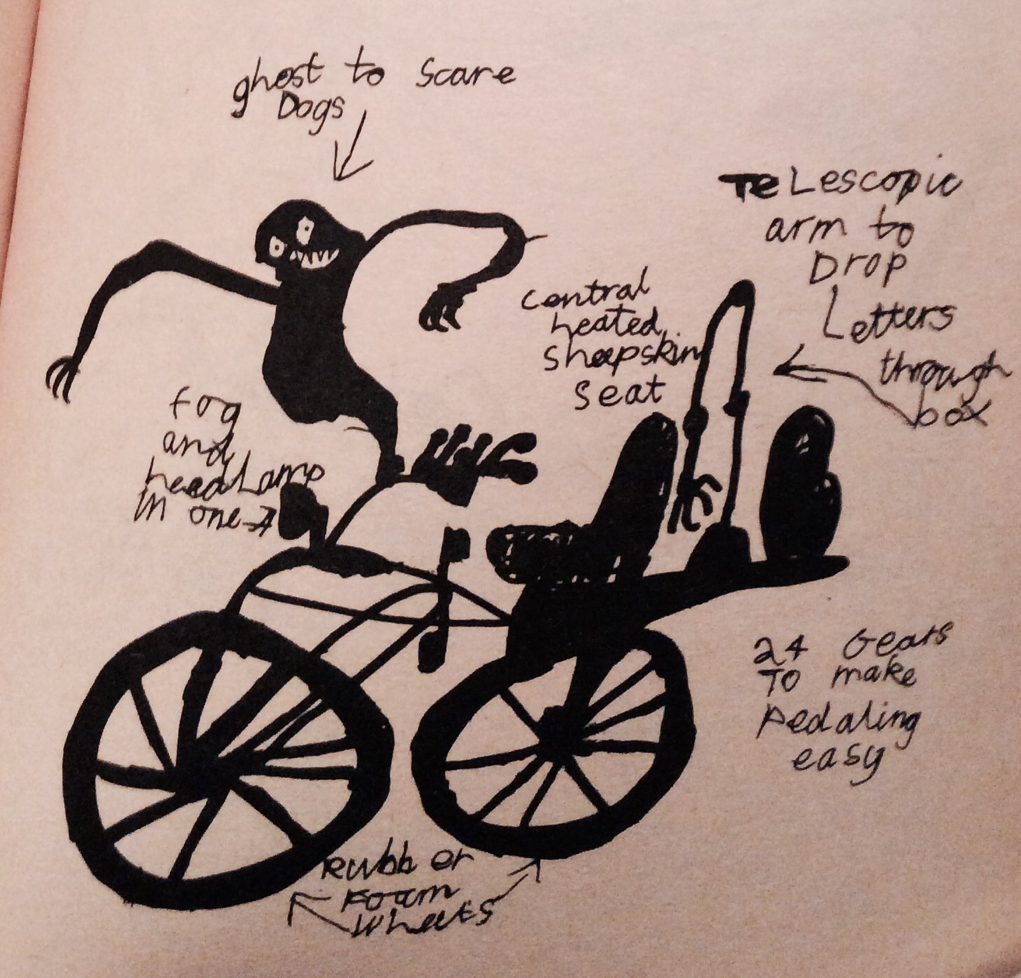 ghost to Scare
Dogs
TeLescopic
arm to
Drop
Letters
through
box
central
heated
sheepskin
Seat
Fog
and
headLamp
in one
24 Gears
TO make
pedaling
easy
Rubber
Foam
Wheels